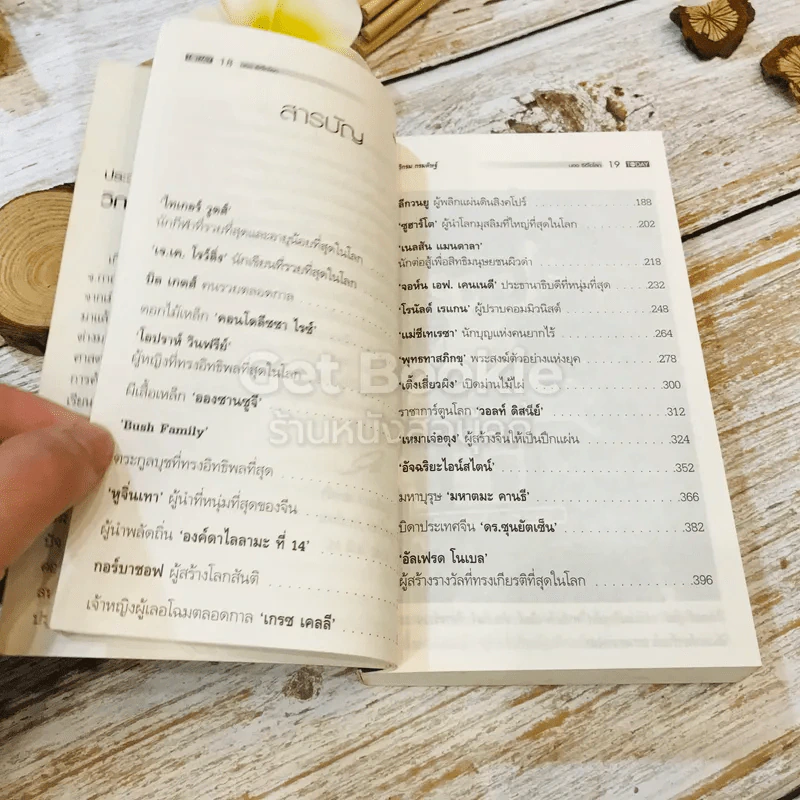 18
สารบัญ
'ไทเกอร์ วูดส์'
นักกีฬาที่รวยที่สุดและอายุน้อยที่สุดในโลก
'เจ.เค. โรว์ลิ่ง' นักเขียนที่รวยที่สุดในโลก
บิล เกตส์ คนรวยตลอดกาล
ดอกไม้เหล็ก 'คอนโดลีซซา ไรซ์'
'โอปราห์ วินฟรีย์'
ผู้หญิงที่ทรงอิทธิพลที่สุดในโลก
ผีเสื้อเหล็ก 'อองซานซูจี'
'Bush Family'
ตระกูลบุชที่ทรงอิทธิพลที่สุด
'หูจิ่นเทา' ผู้นำที่หนุ่มที่สุดของจีน
ผู้นำพลัดถิ่น 'องค์ดาไลลามะ ที่ 14'
กอร์บาชอฟ ผู้สร้างโลกสันติ
เจ้าหญิงผู้เลอโฉมตลอดกาล 'เกรซ เคลลี่'
วิกรม กรมดิษฐ์ 19 TODAY
ลีกวนยู ผู้พลิกแผ่นดินสิงคโปร์ 188
'ซูฮาร์โต' ผู้นำโลกมุสลิมที่ใหญ่ที่สุดในโลก 202
'เนลสัน แมนดาลา'
นักต่อสู้เพื่อสิทธิมนุษยชนผิวดำ 218
'จอห์น เอฟ. เคนเนดี' ประธานาธิบดีที่หนุ่มที่สุด 232
'โรนัลด์ เรแกน' ผู้ปราบคอมมิวนิสต์ 248
'แม่ชีเทเรซา' นักบุญแห่งคนยากไร้ 264
'พุทธทาสภิกขุ' พระสงฆ์ตัวอย่างแห่งยุค 278
'เติ้งเสี่ยวผิง' เปิดม่านไม้ไผ่ 300
ราชาการ์ตูนโลก 'วอลท์ ดิสนีย์' 312
'เหมาเจ๋อตุง' ผู้สร้างจีนให้เป็นปึกแผ่น 324
'อัจฉริยะไอน์สไตน์' 352
มหาบุรุษ 'มหาตมะ คานธี' 366
บิดาประเทศจีน 'ดร.ซุนยัตเซ็น' 382
'อัลเฟรด โนเบล'
ผู้สร้างรางวัลที่ทรงเกียรติที่สุดในโลก 396
Get Bookie
ร้านหนังสือนุกกี้